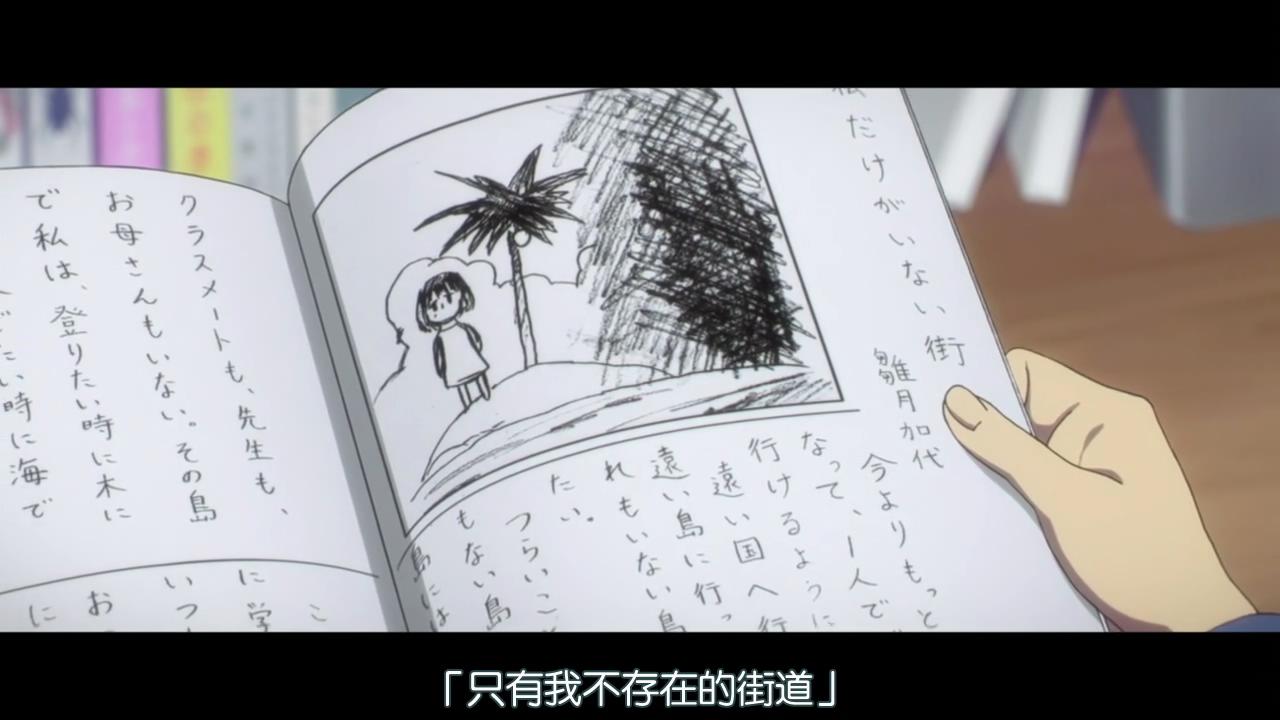 私だけがいない街
雛月加代
今よりもっと
なって、1人で
行けるように
遠い国へ行
遠い島に行っ
れもいない島
たい。
つらいこ
もない島
島には
クラスメートも、先生も、
お母さんもいない。その島
で私は、登りたい時に木に
たい時に海で
こ
に学
いつ
お
に
「只有我不存在的街道」